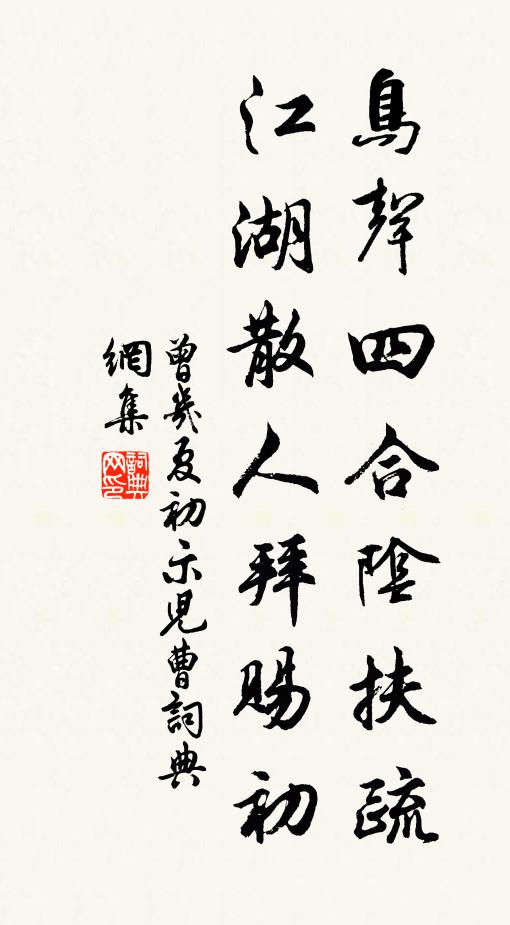 鳥聲四合陰扶疏
江湖散人拜賜初
曾幾夏初示兒曹詞典
網集
詞典
网印